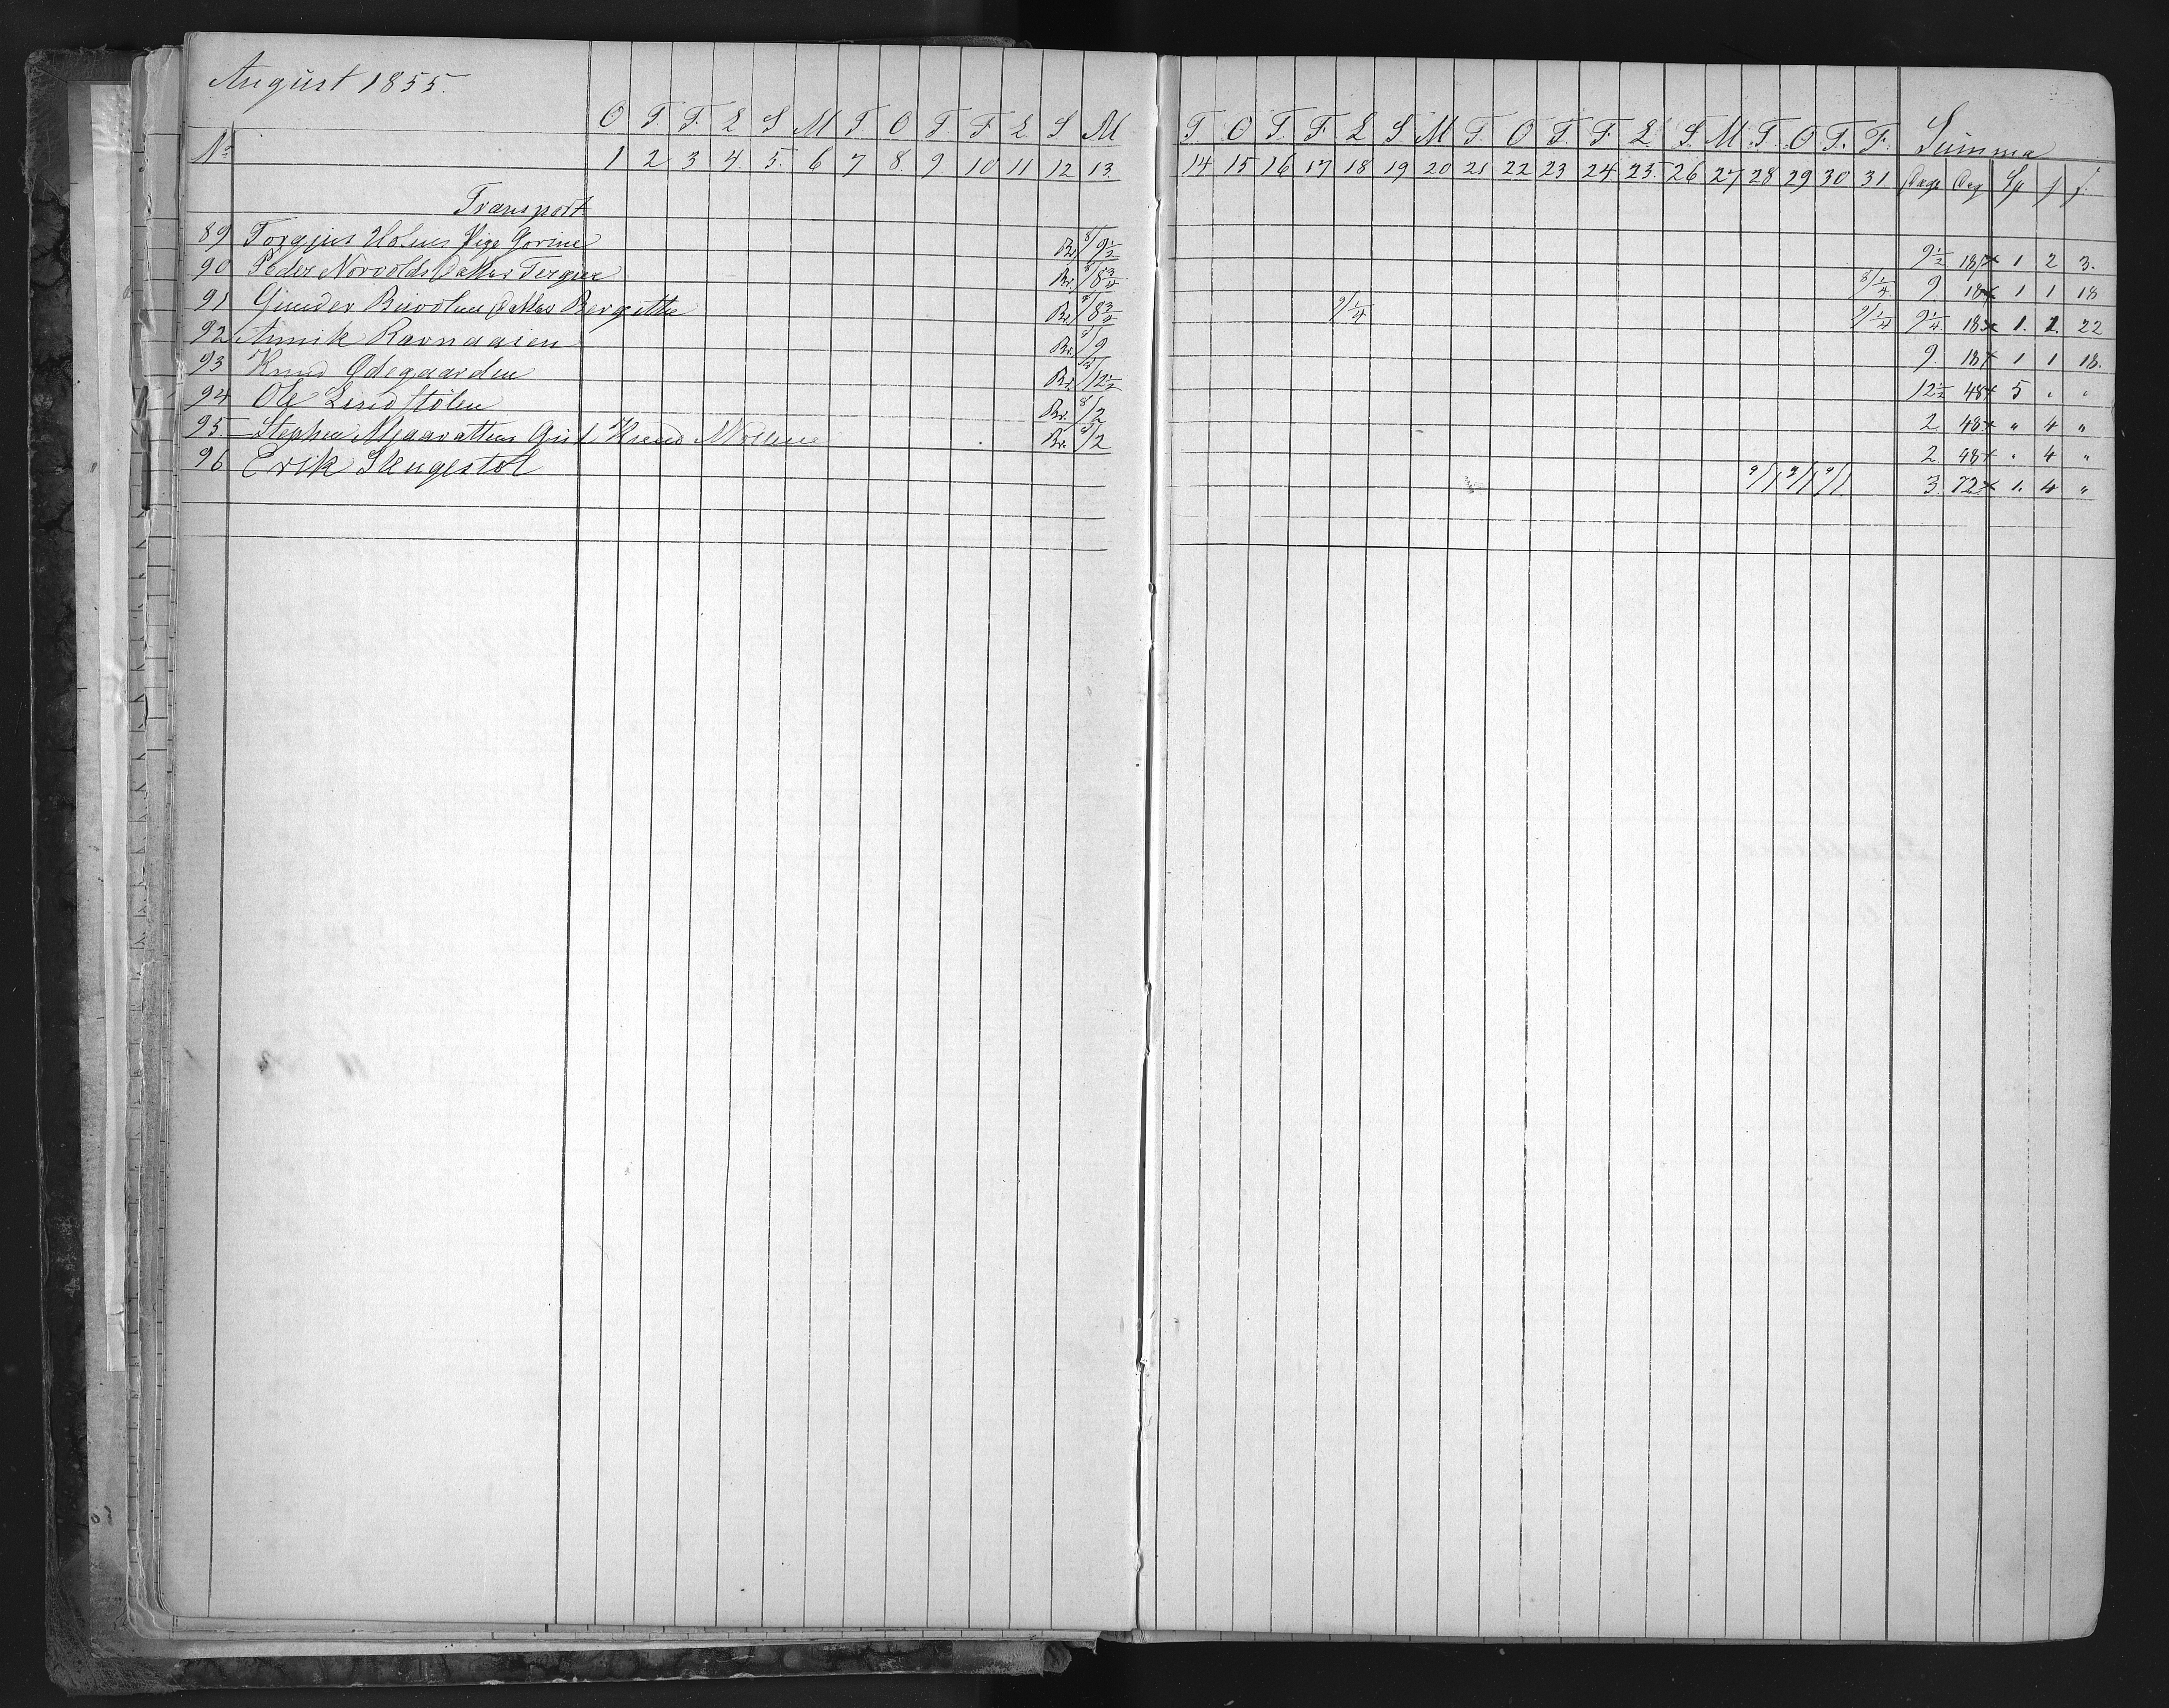 August 1855.
O T. T. L S M T O T F L S M T. O T. F. L S. M T. O T. F. L S. M T. O T. F. Summa
No 1 2 3 4. 5. 6 7 8. 9. 10 11 12 13. 14 15 16 17 18 19 20 21 22 23 24 25. 26 27 28 29 30 31. Dage Dag Sp
Transport
89 Torgjus Holmes Pige Gorine Br. 8/9½ 9½ 18 × 1 2 3.
90 Peder Norvolds Datter Br. 8/8¾ 8/¼ 9. 18 × 1 1 18
91 Gunder Datter Bergitte Br. 9/8¾ 9/¼ 9/¼ 9¼ 18 × 1. 1. 22
92 Annik Ravnaasen Br. 9/9 9. 18 × 1 1 18.
93 Knud Ødegaarden Br. /12½ 12½ 48 × 5 „ „
94 Ole Br. 8/2 2 48 × „ 4 „
95. Stephen Knud Br. 9/2 2. 48 × „ 4 „
96 Erik Slengestøl 9/1 9/1 9/1. 3. 72 × 1. 4 „